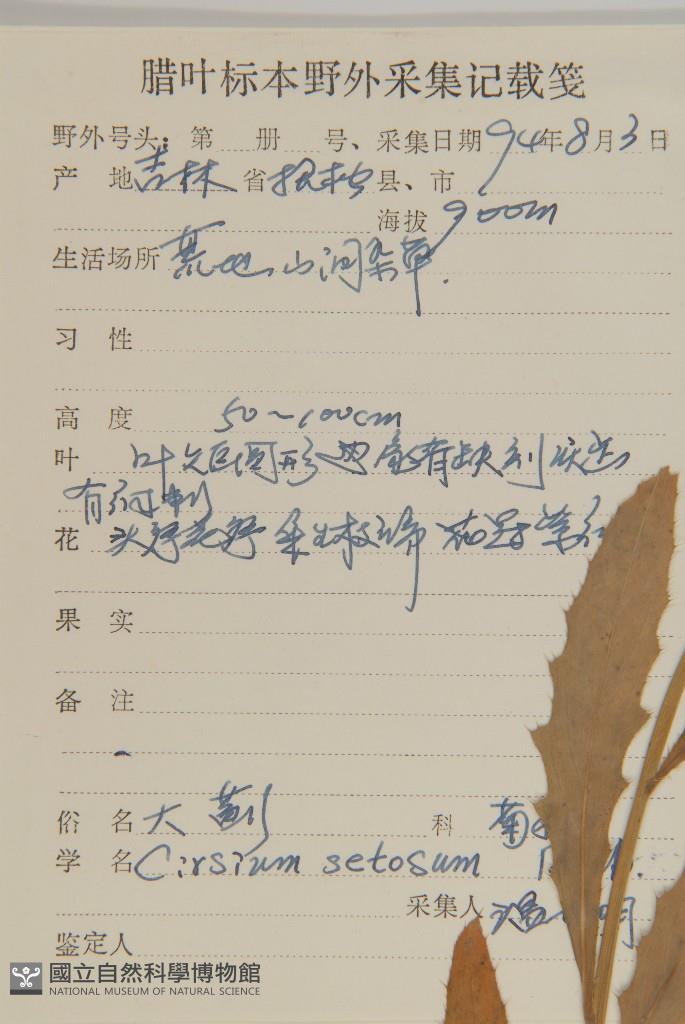 腊叶标本野外采集记载笺
野外号头：第 册 号、采集日期 94年8月3日
产 地 吉林 省 抚松 县、市
海拔 900cm
生活场所 荒地 山间杂草.
习 性
高 度 50~100cm
叶 叶 圆形 有缺刻
有 刺
花 头状花序 生枝端 花冠 紫
果 实
备 注
俗 名 大蓟 科 菊
学 名 Cirsium setosum
采集人 温 明
鉴定人
國立自然科學博物館
NATIONAL MUSEUM OF NATURAL SCIENCE